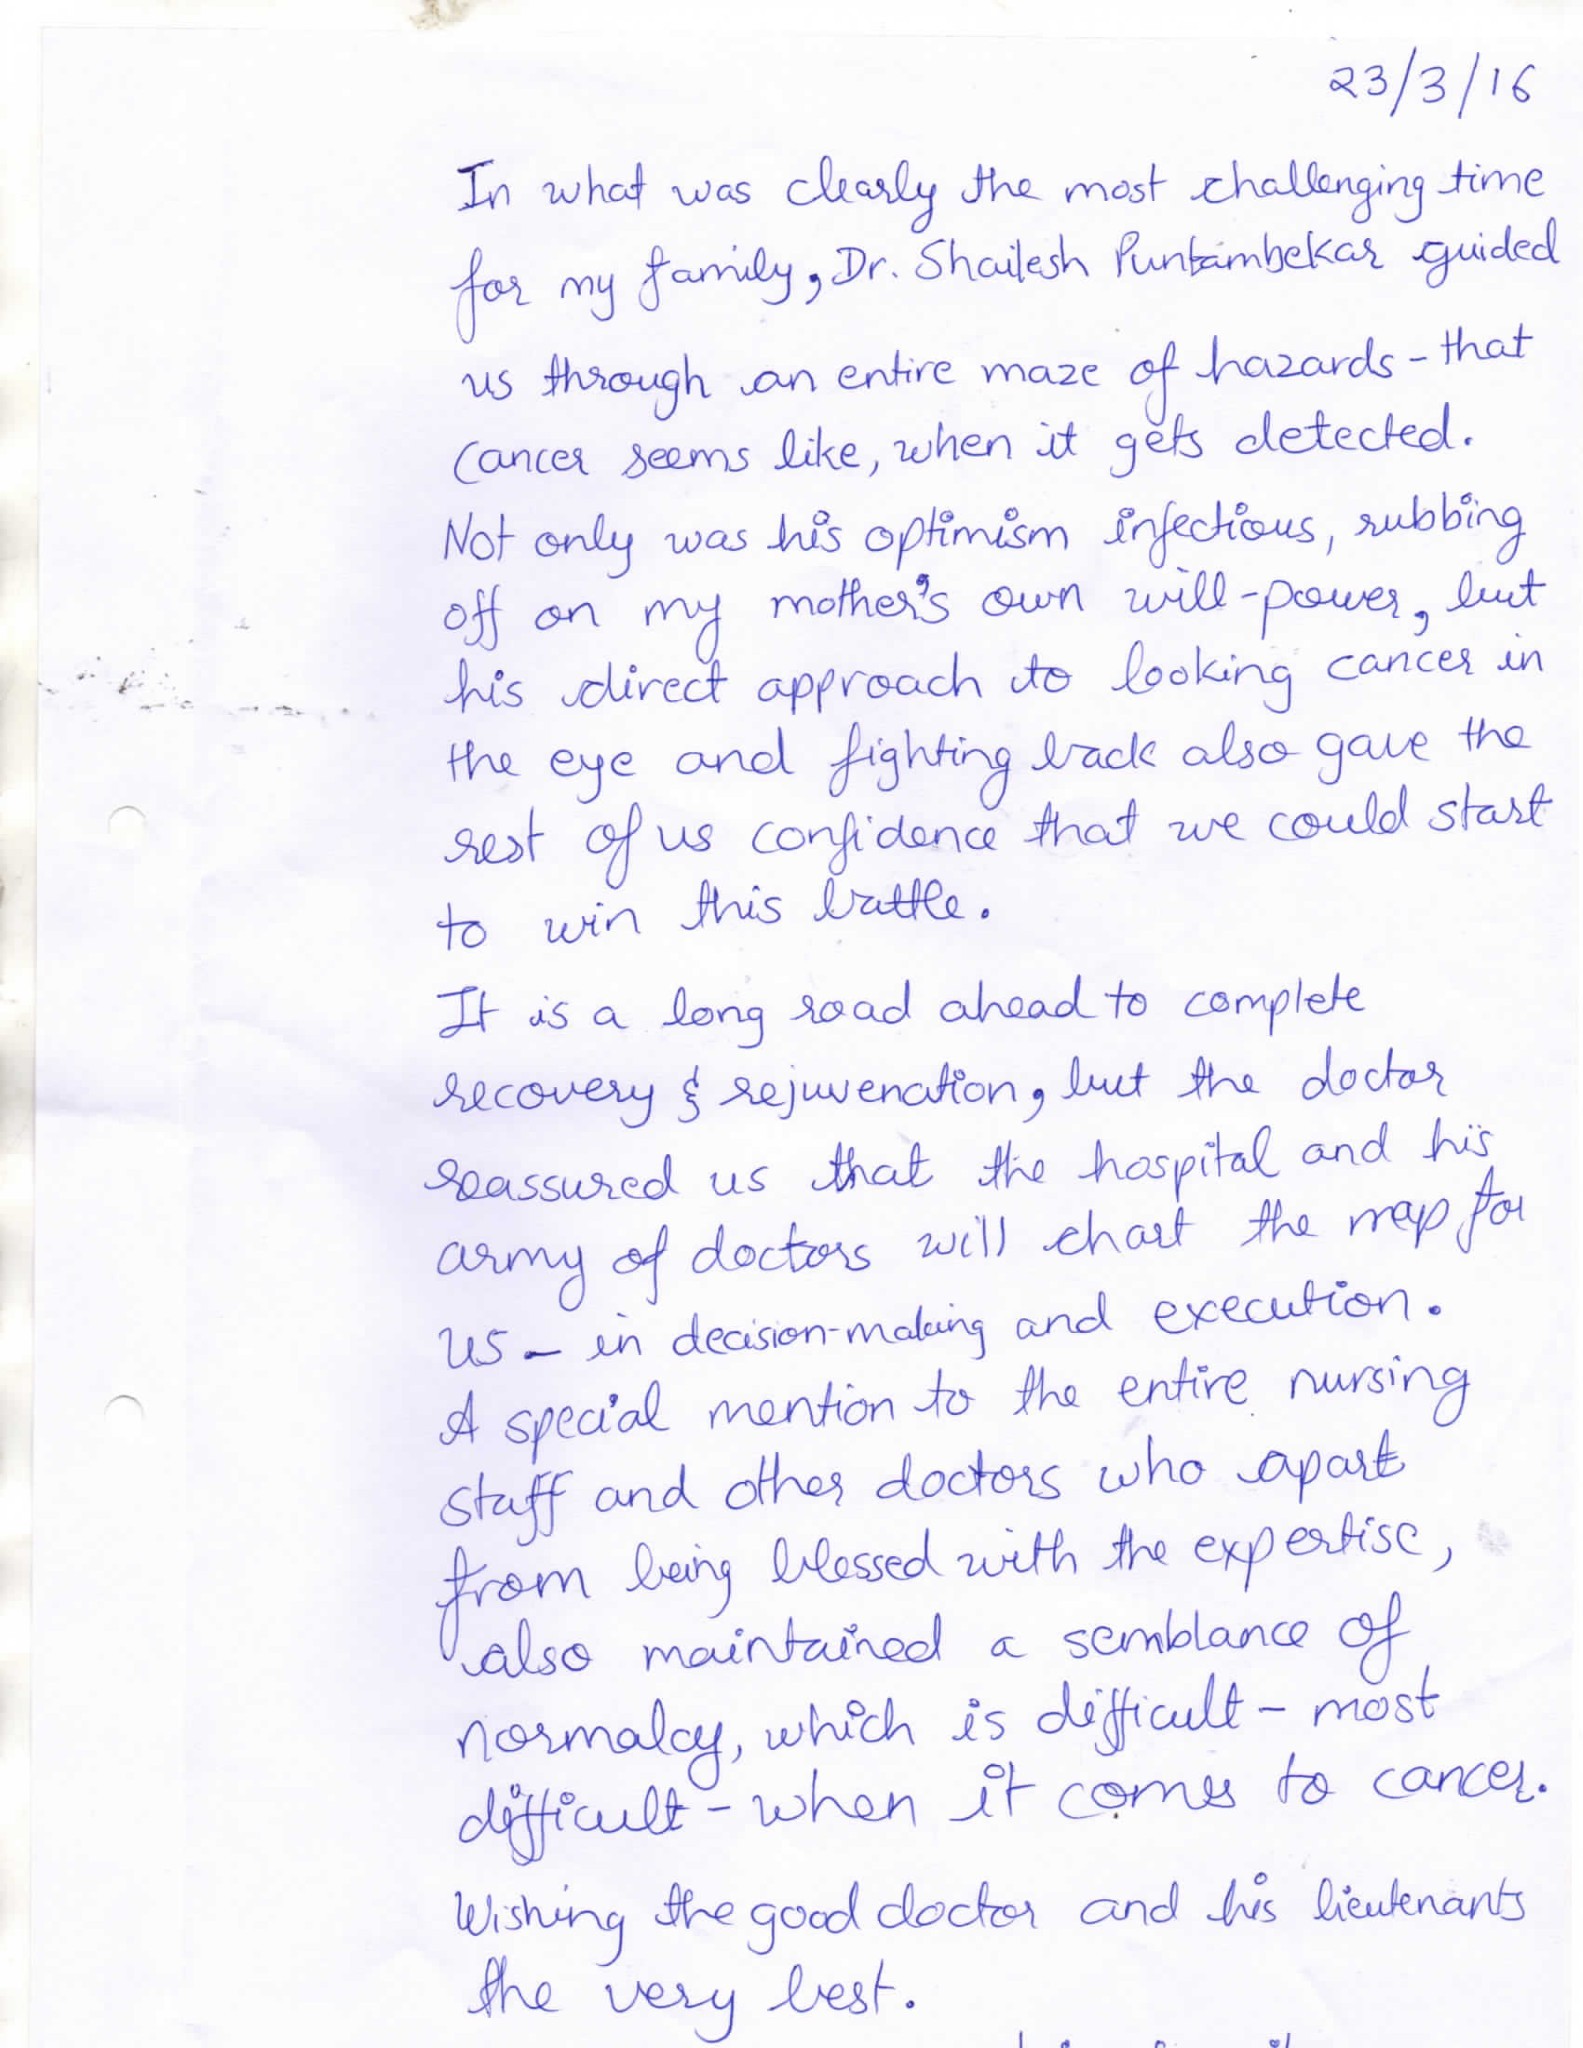 23/3/16
In what was clearly the most challenging time
for my family, Dr. Shailesh Puntambekar guided
us through an entire maze of hazards - that
Cancer seems like, when it gets detected.
Not only was his optimism infectious, rubbing
off on my mother's own will-power, but
his direct approach to looking cancer in
the eye and fighting back also gave the
rest of us confidence that we could start
to win this battle.
It is a long road ahead to complete
recovery & rejuvenation, but the doctor
reassured us that the hospital and his
army of doctors will chart the map for
us - in decision-making and execution.
A special mention to the entire nursing
staff and other doctors who apart
from being blessed with the expertise,
also maintained a semblance of
normalcy, which is difficult - most
difficult - when it comes to cancer.
Wishing the good doctor and his lieutenants
the very best.